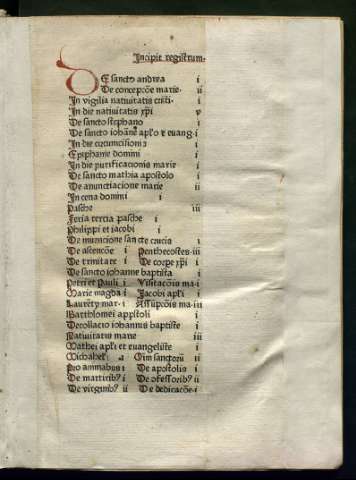 Incipit registrum.
De sancto andrea i
De concepcõe marie. ii
In vigilia natiuitatis cristi. i
In die natiuitatis xp̄i v
De sancto stephano i
De sancto iohāne apl'o ⁊ euang. i
In die circumcisionis i
Epiphanie domini i
In die purificacionis marie i
De sancto mathia apostolo i
De anunctiacione marie ii
In cena domini i
Pasche iii
Feria tercia pasche i
Philippi et iacobi i
De inuencione sancte crucis i
De ascencõe i Penthecostes iii
De trinitate i De corpe xp̄i i
De sancto iohanne baptista i
Petri et Pauli i Visitacõis ma. i
Marie magda i Jacobi apl'i i
Laurēty mar. i Assūpcõis ma. iii
Bartholomei appstoli i
Decollacio iohannis baptiste i
Natiuitatis marie iii
Mathei apl'i et euangeliste i
Michahel' Oim sanctorū ii
Pro animabus i De apostolis i
De martirib9 i De cōfessorib9 ii
De virginib9 ii De dedicacõe. i